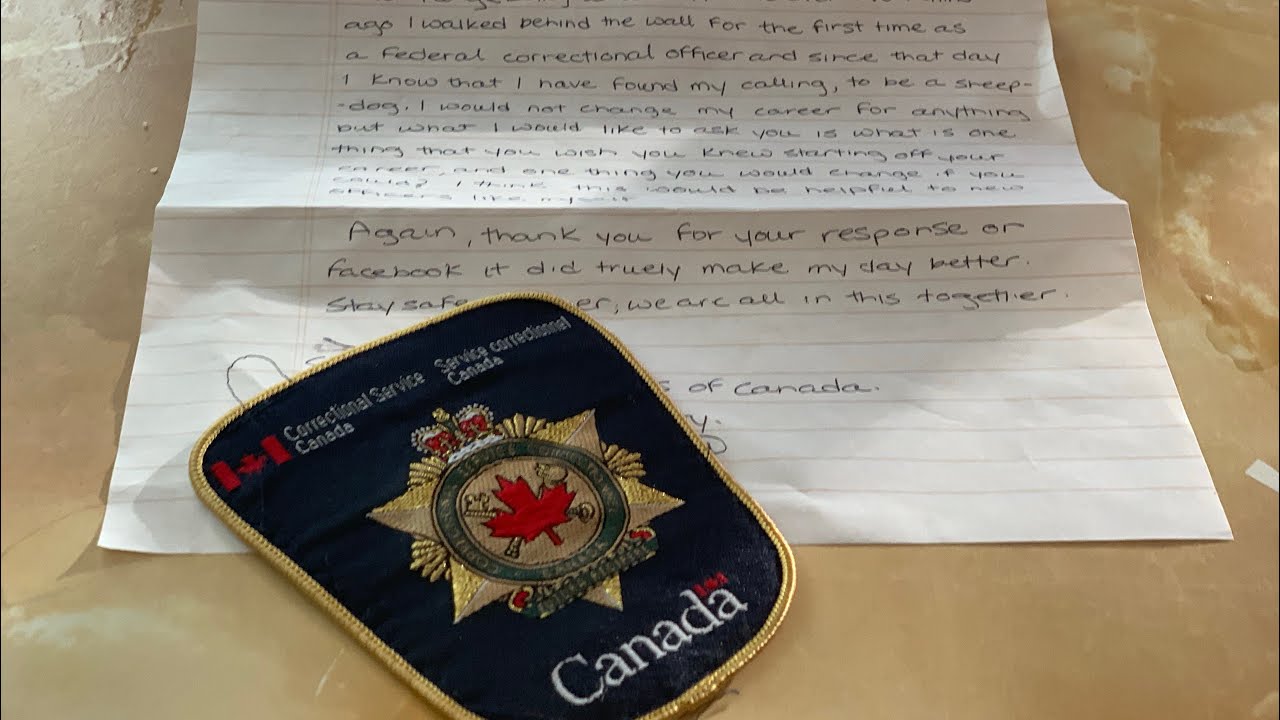 ago I walked behind the wall for the first time as
a federal correctional officer and since that day
I know that I have found my calling, to be a sheep-
-dog. I would not change my career for anything
but what I would like to ask you is what is one
thing that you wish you knew starting off your
career, and one thing you would change if you
could? I think this would be helpful to new
officers like myself
Again, thank you for your response on
facebook it did truely make my day better.
Stay safe er, we are all in this together.
of Canada.
y.
Correctional Service
Canada
Service correctionnel
Canada
Canada